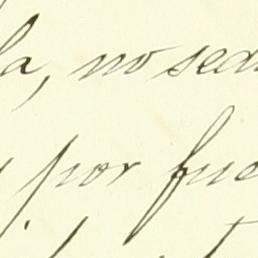 la, no sed
por fue